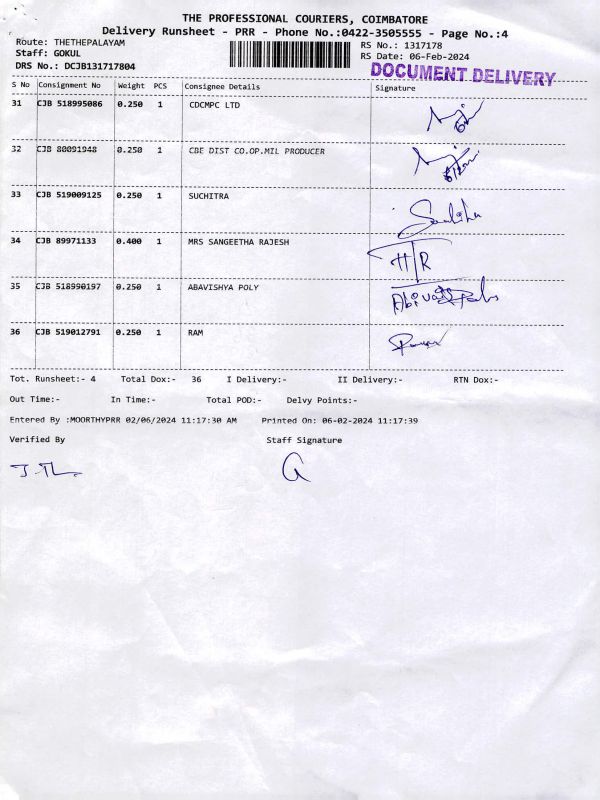 THE PROFESSIONAL COURIERS, COIMBATORE
Delivery Runsheet - PRR - Phone No.:0422-3505555 - Page No.:4
Route: THETHEPALAYAM RS No.: 1317178
Staff: GOKUL RS Date: 06-Feb-2024
DRS No.: DCJB131717804 DOCUMENT DELIVERY
S No Consignment No Weight PCS Consignee Details Signature
31 CJB 518995086 0.250 1 CDCMPC LTD
32 CJB 80091948 0.250 1 CBE DIST CO.OP.MIL PRODUCER
33 CJB 519009125 0.250 1 SUCHITRA
34 CJB 89971133 0.400 1 MRS SANGEETHA RAJESH
35 CJB 518990197 0.250 1 ABAVISHYA POLY
36 CJB 519012791 0.250 1 RAM
Tot. Runsheet:- 4 Total Dox:- 36 I Delivery:- II Delivery:- RTN Dox:-
Out Time:- In Time:- Total POD:- Delvy Points:-
Entered By :MOORTHYPRR 02/06/2024 11:17:30 AM Printed On: 06-02-2024 11:17:39
Verified By Staff Signature